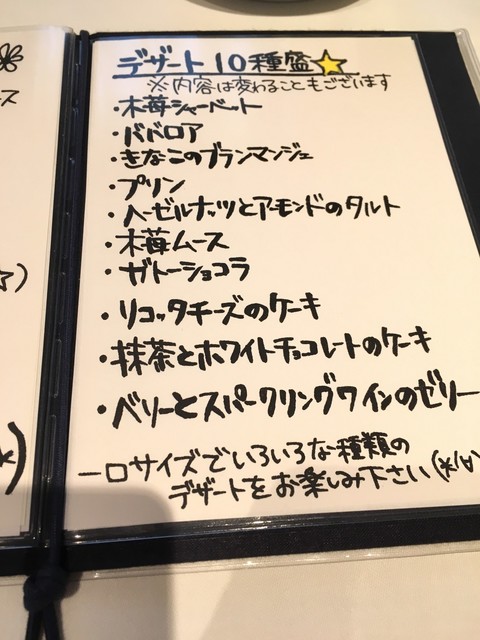 デザート10種盛★
※内容は変わることもございます
・木苺シャーベット
・ババロア
・きなこのブランマンジェ
・プリン
・ヘーゼルナッツとアーモンドのタルト
・木苺ムース
・ガトーショコラ
・リコッタチーズのケーキ
・抹茶とホワイトチョコレートのケーキ
・ベリーとスパークリングワインのゼリー
一口サイズでいろいろな種類の
デザートをお楽しみ下さい(*^∀^
ース
☆)
*)